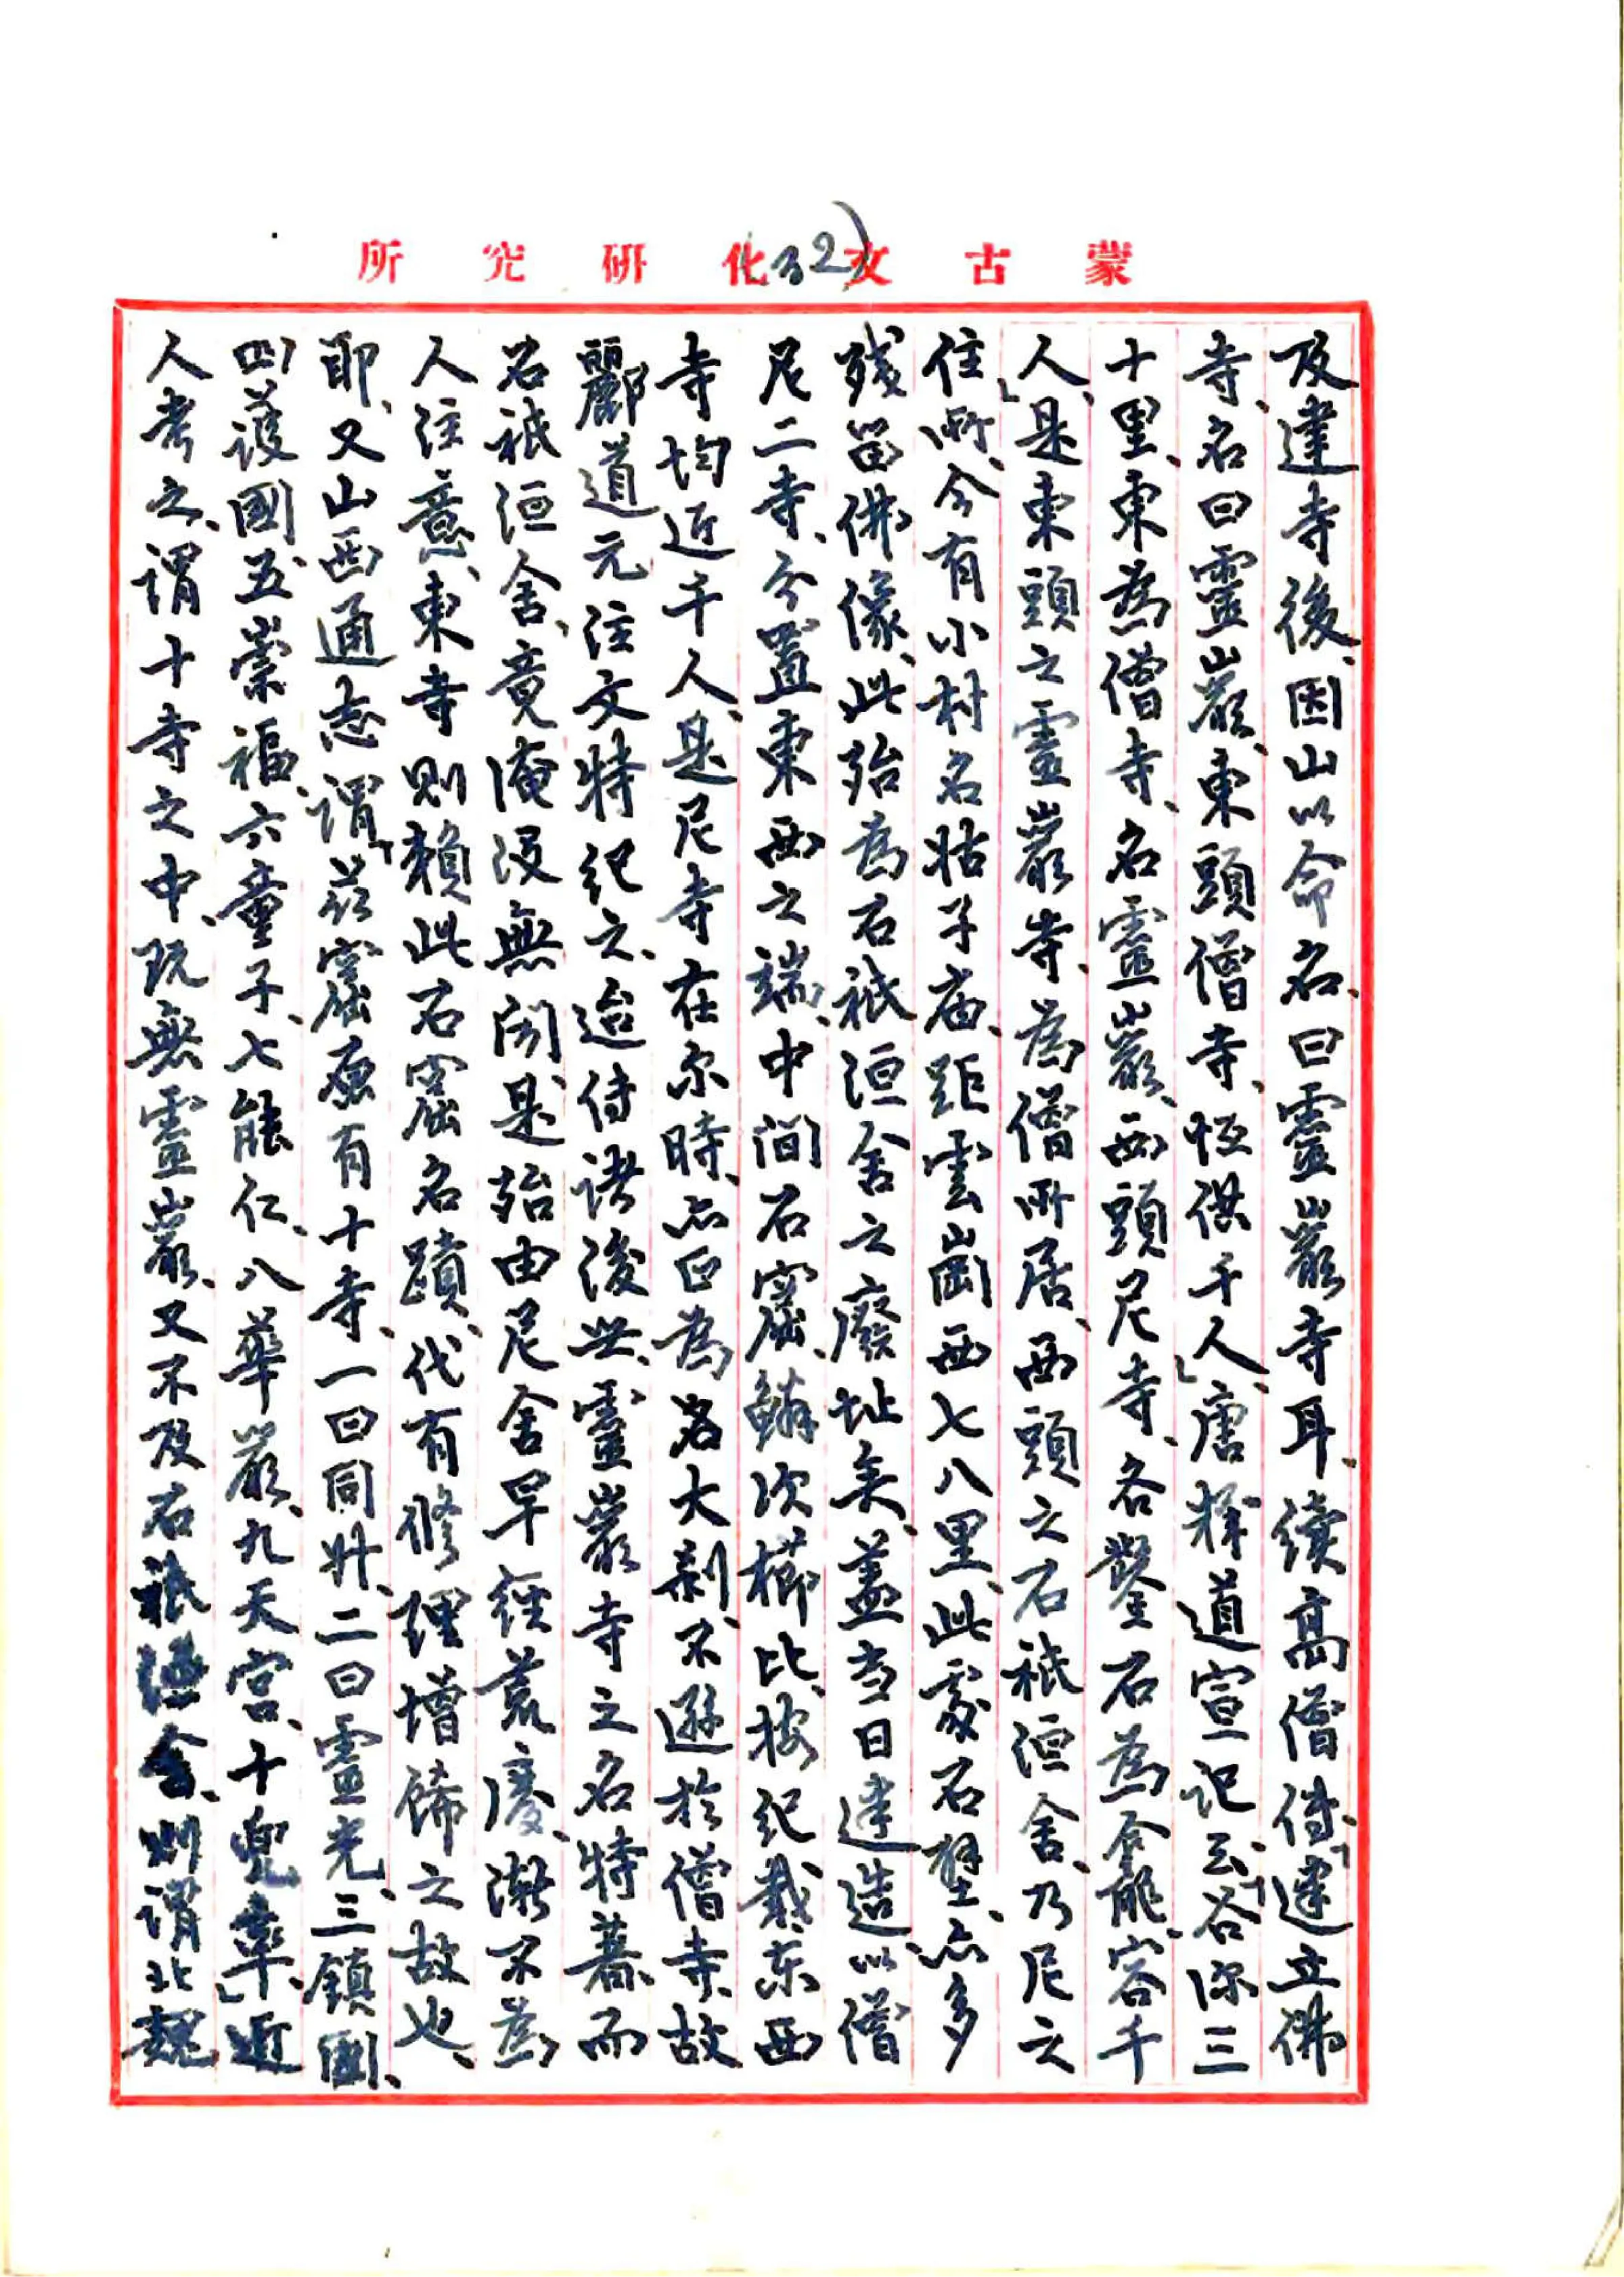 蒙古文化研究所
(32)
及建寺後、因山以命名、曰靈巖寺耳、續高僧傳、「建立佛
寺、名曰靈巖、東頭僧寺、恆供千人」、唐釋道宣記云、「谷深三
十里、東為僧寺、名靈巖、西頭尼寺、各鑿石為龕、能容千
人」、是東頭之靈巖寺、為僧所居、西頭之石祇洹舍、乃尼之
住所、今有小村名姑子庙、距雲崗西七八里、此處石壁、亦多
残留佛像、此殆為石祇洹舍之廢址矣、蓋当日建造、以僧
尼二寺、分置東西之端、中间石窟、鱗次櫛比、按紀载、东西
寺均近千人、是尼寺在尔時、亦正為名大刹、不遜於僧寺、故
酈道元注文特紀之、迨待諸後世、靈巖寺之名特著、而
石祇洹舍、竟淹没無闻、是殆由尼舍早經荒廢、漸不為
人注意、東寺則賴此石窟名蹟、代有修理增飾之故也、
耶、又山西通志謂「茲窟原有十寺、一曰同升、二曰靈光、三鎮國、
四護國、五崇福、六童子、七能仁、八華嚴、九天宮、十兜率」、近
人考之、謂十寺之中、既無靈巖、又不及石祇洹舍、則謂北魏